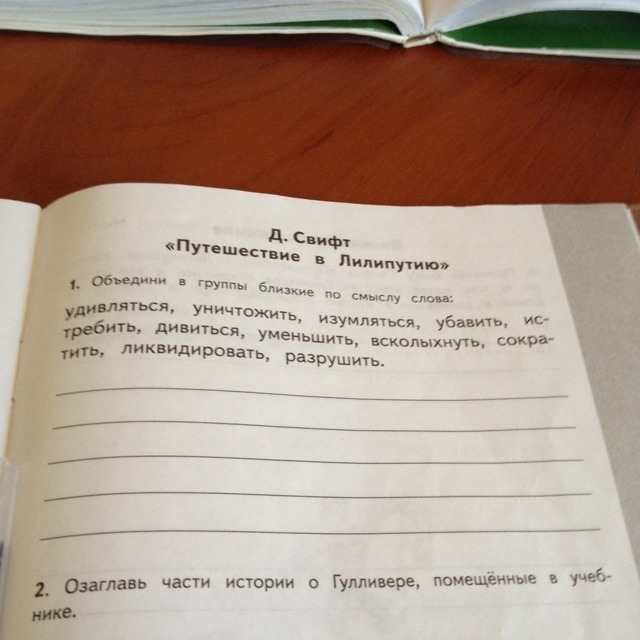 Д. Свифт
«Путешествие в Лилипутию»
1. Объедини в группы близкие по смыслу слова:
удивляться, уничтожить, изумляться, убавить, ис-
требить, дивиться, уменьшить, всколыхнуть, сокра-
тить, ликвидировать, разрушить.
2. Озаглавь части истории о Гулливере, помещённые в учеб-
нике.